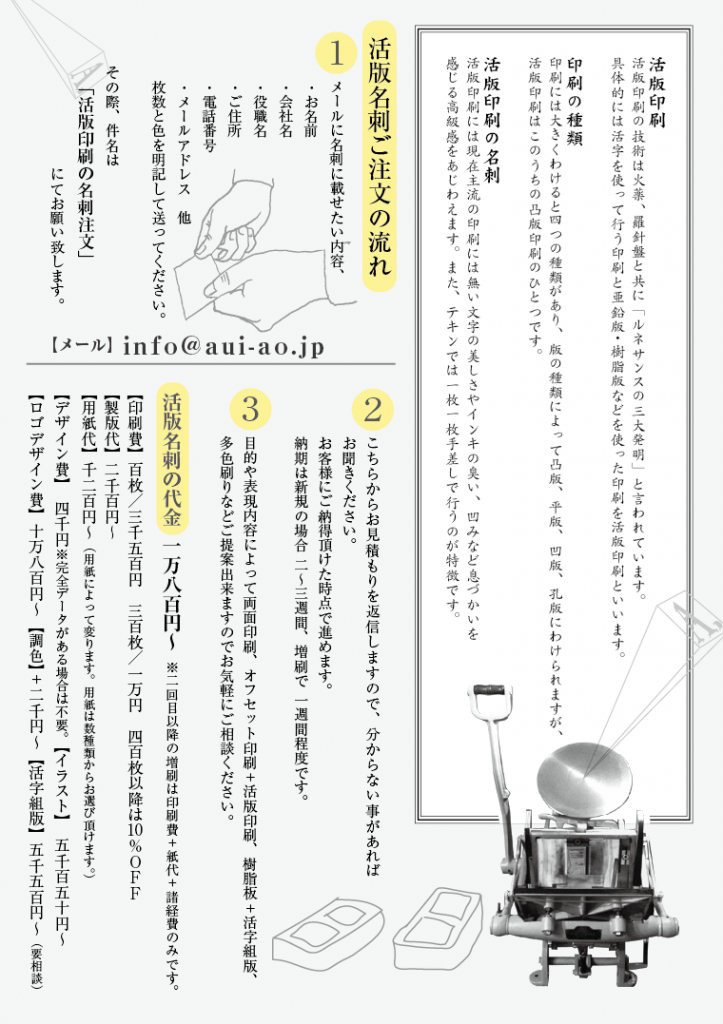 活版印刷
活版印刷の技術は火薬、羅針盤と共に「ルネサンスの三大発明」と言われています。
具体的には活字を使って行う印刷と亜鉛版・樹脂版などを使った印刷を活版印刷といいます。
印刷の種類
印刷には大きくわけると四つの種類があり、版の種類によって凸版、平版、凹版、孔版にわけられますが、
活版印刷はこのうちの凸版印刷のひとつです。
活版印刷の名刺
活版印刷には現在主流の印刷には無い文字の美しさやインキの臭い、凹みなど息づかいを
感じる高級感をあじわえます。また、テキンでは一枚一枚手差しで行うのが特徴です。
活版名刺ご注文の流れ
1
メールに名刺に載せたい内容、
・お名前
・会社名
・役職名
・ご住所
・電話番号
・メールアドレス　他
枚数と色を明記して送ってください。
その際、件名は
「活版印刷の名刺注文」
にてお願い致します。
【メール】info@aui-ao.jp
2
こちらからお見積もりを返信しますので、分からない事があれば
お聞きください。
お客様にご納得頂けた時点で進めます。
納期は新規の場合 二〜三週間、増刷で 一週間程度です。
3
目的や表現内容によって両面印刷、オフセット印刷＋活版印刷、樹脂板＋活字組版、
多色刷りなどご提案出来ますのでお気軽にご相談ください。
活版名刺の代金　一万八百円〜　※二回目以降の増刷は印刷費＋紙代＋諸経費のみです。
【印刷費】百枚／三千五百円　三百枚／一万円　四百枚以降は10％OFF
【製版代】二千百円〜
【用紙代】千二百円〜（用紙によって変ります。用紙は数種類からお選び頂けます。）
【デザイン費】　四千円※完全データがある場合は不要。【イラスト】　五千百五十円〜
【ロゴデザイン費】十万八百円〜【調色】＋二千円〜【活字組版】五千五百円〜（要相談）
A
A